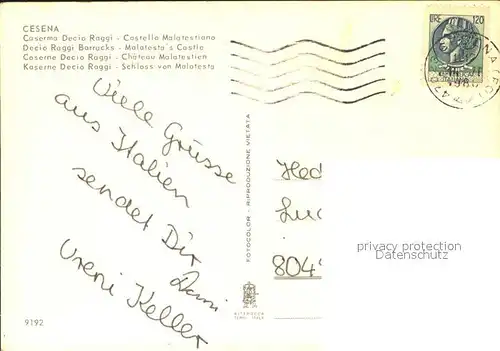 CESENA
Caserma Decio Raggi - Castello Malatestiano
Decio Raggi Barracks - Malatesta's Castle
Caserne Decio Raggi - Château Malatestien
Kaserne Decio Raggi - Schloss von Malatesta
LIRE 120
Viele Grüsse
aus Italien
sendet Dir
Vreni Keller
FOTOCOLOR - RIPRODUZIONE VIETATA
Hed
804
privacy protection
Datenschutz
ALTEROCCA
TERNI ITALY
9192